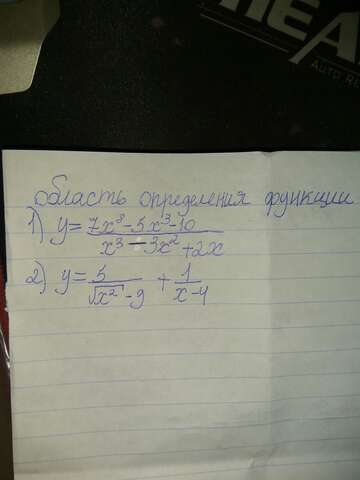 HEA
AUTO RO
область определения функции
1) y = 7x³-5x³-10 / x³-3x²+2x
2) y = 5 / √x² - 9 + 1 / x-4